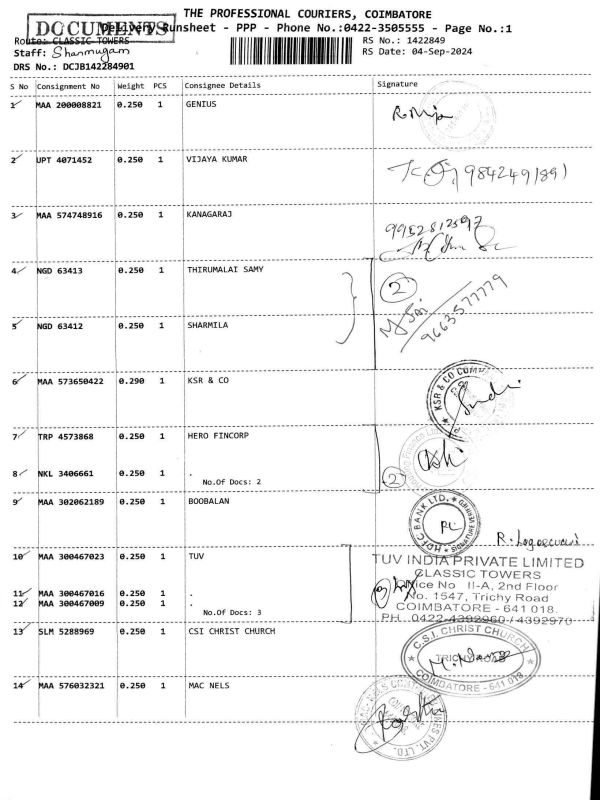 THE PROFESSIONAL COURIERS, COIMBATORE
DOCUMENTS
Delivery Runsheet - PPP - Phone No.:0422-3505555 - Page No.:1
Route: CLASSIC TOWERS
RS No.: 1422849
Staff: Shanmugam
RS Date: 04-Sep-2024
DRS No.: DCJB142284901
S No Consignment No Weight PCS Consignee Details Signature
1 MAA 200008821 0.250 1 GENIUS
2 UPT 4071452 0.250 1 VIJAYA KUMAR
3 MAA 574748916 0.250 1 KANAGARAJ
4 NGD 63413 0.250 1 THIRUMALAI SAMY
2
5 NGD 63412 0.250 1 SHARMILA
9663577779
6 MAA 573650422 0.290 1 KSR & CO
KSR & CO
7 TRP 4573868 0.250 1 HERO FINCORP
8 NKL 3406661 0.250 1 .
No.Of Docs: 2
2
9 MAA 302062189 0.250 1 BOOBALAN
HDFC BANK LTD.
10 MAA 300467023 0.250 1 TUV
TUV INDIA PRIVATE LIMITED
CLASSIC TOWERS
Office No II-A, 2nd Floor
11 MAA 300467016 0.250 1 .
No. 1547, Trichy Road
12 MAA 300467009 0.250 1 .
COIMBATORE - 641 018.
No.Of Docs: 3
PH. 0422-4392960 / 4392970
13 SLM 5288969 0.250 1 CSI CHRIST CHURCH
C.S.I. CHRIST CHURCH
TRICHY ROAD
COIMBATORE - 641 018
14 MAA 576032321 0.250 1 MAC NELS